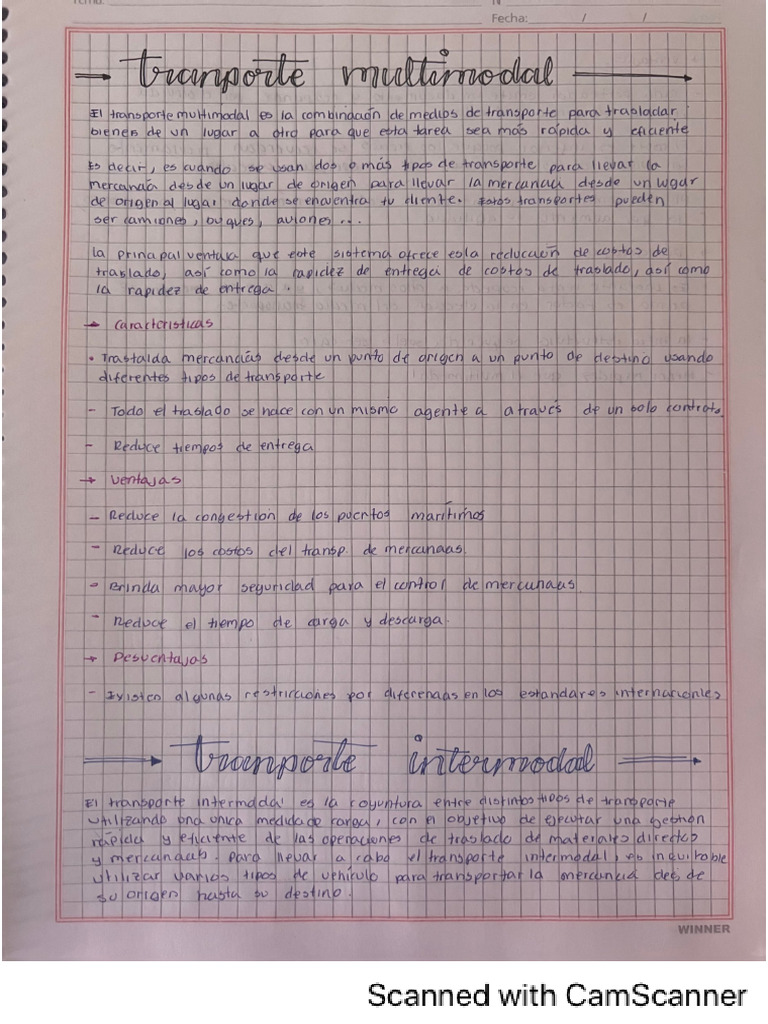 Fecha: / /
tranporte multimodal
El transporte multimodal es la combinación de medios de transporte para trasladar
bienes de un lugar a otro para que esta tarea sea más rápida y eficiente
Es decir, es cuando se usan dos o más tipos de transporte para llevar la
mercancía desde un lugar de origen para llevar la mercancia desde un lugar
de origen al lugar donde se encuentra tu cliente. Estos transportes pueden
ser camiones, buques, aviones ...
La principal ventaja que este sistema ofrece es la reducción de costos de
traslado, así como la rapidez de entrega de costos de traslado, así como
la rapidez de entrega.
→ Caracteristicas
• Trastalda mercancías desde un punto de origen a un punto de destino usando
diferentes tipos de transporte
- Todo el traslado se hace con un mismo agente a atraves de un solo contrato.
- Reduce tiempos de entrega
→ Ventajas
- Reduce la congestion de los puertos marítimos
- Reduce los costos del transp. de mercancias.
- Brinda mayor seguridad para el control de mercancias
- Reduce el tiempo de carga y descarga.
→ Desventajas
- Existen algunas restricciones por diferencias en los estandares internacionles
tranporte intermodal
El transporte intermodal es la coyuntura entre distintos tipos de transporte
utilizando una unica medida de carga, con el objetivo de ejecutar una gestión
rápida y eficiente de las operaciones de traslado de materiales directos
y mercancias. Para llevar a cabo el transporte intermodal, es
utilizar varios tipos de vehículo para transportar la mercancia des de
su origen hasta su destino.
WINNER
Scanned with CamScanner